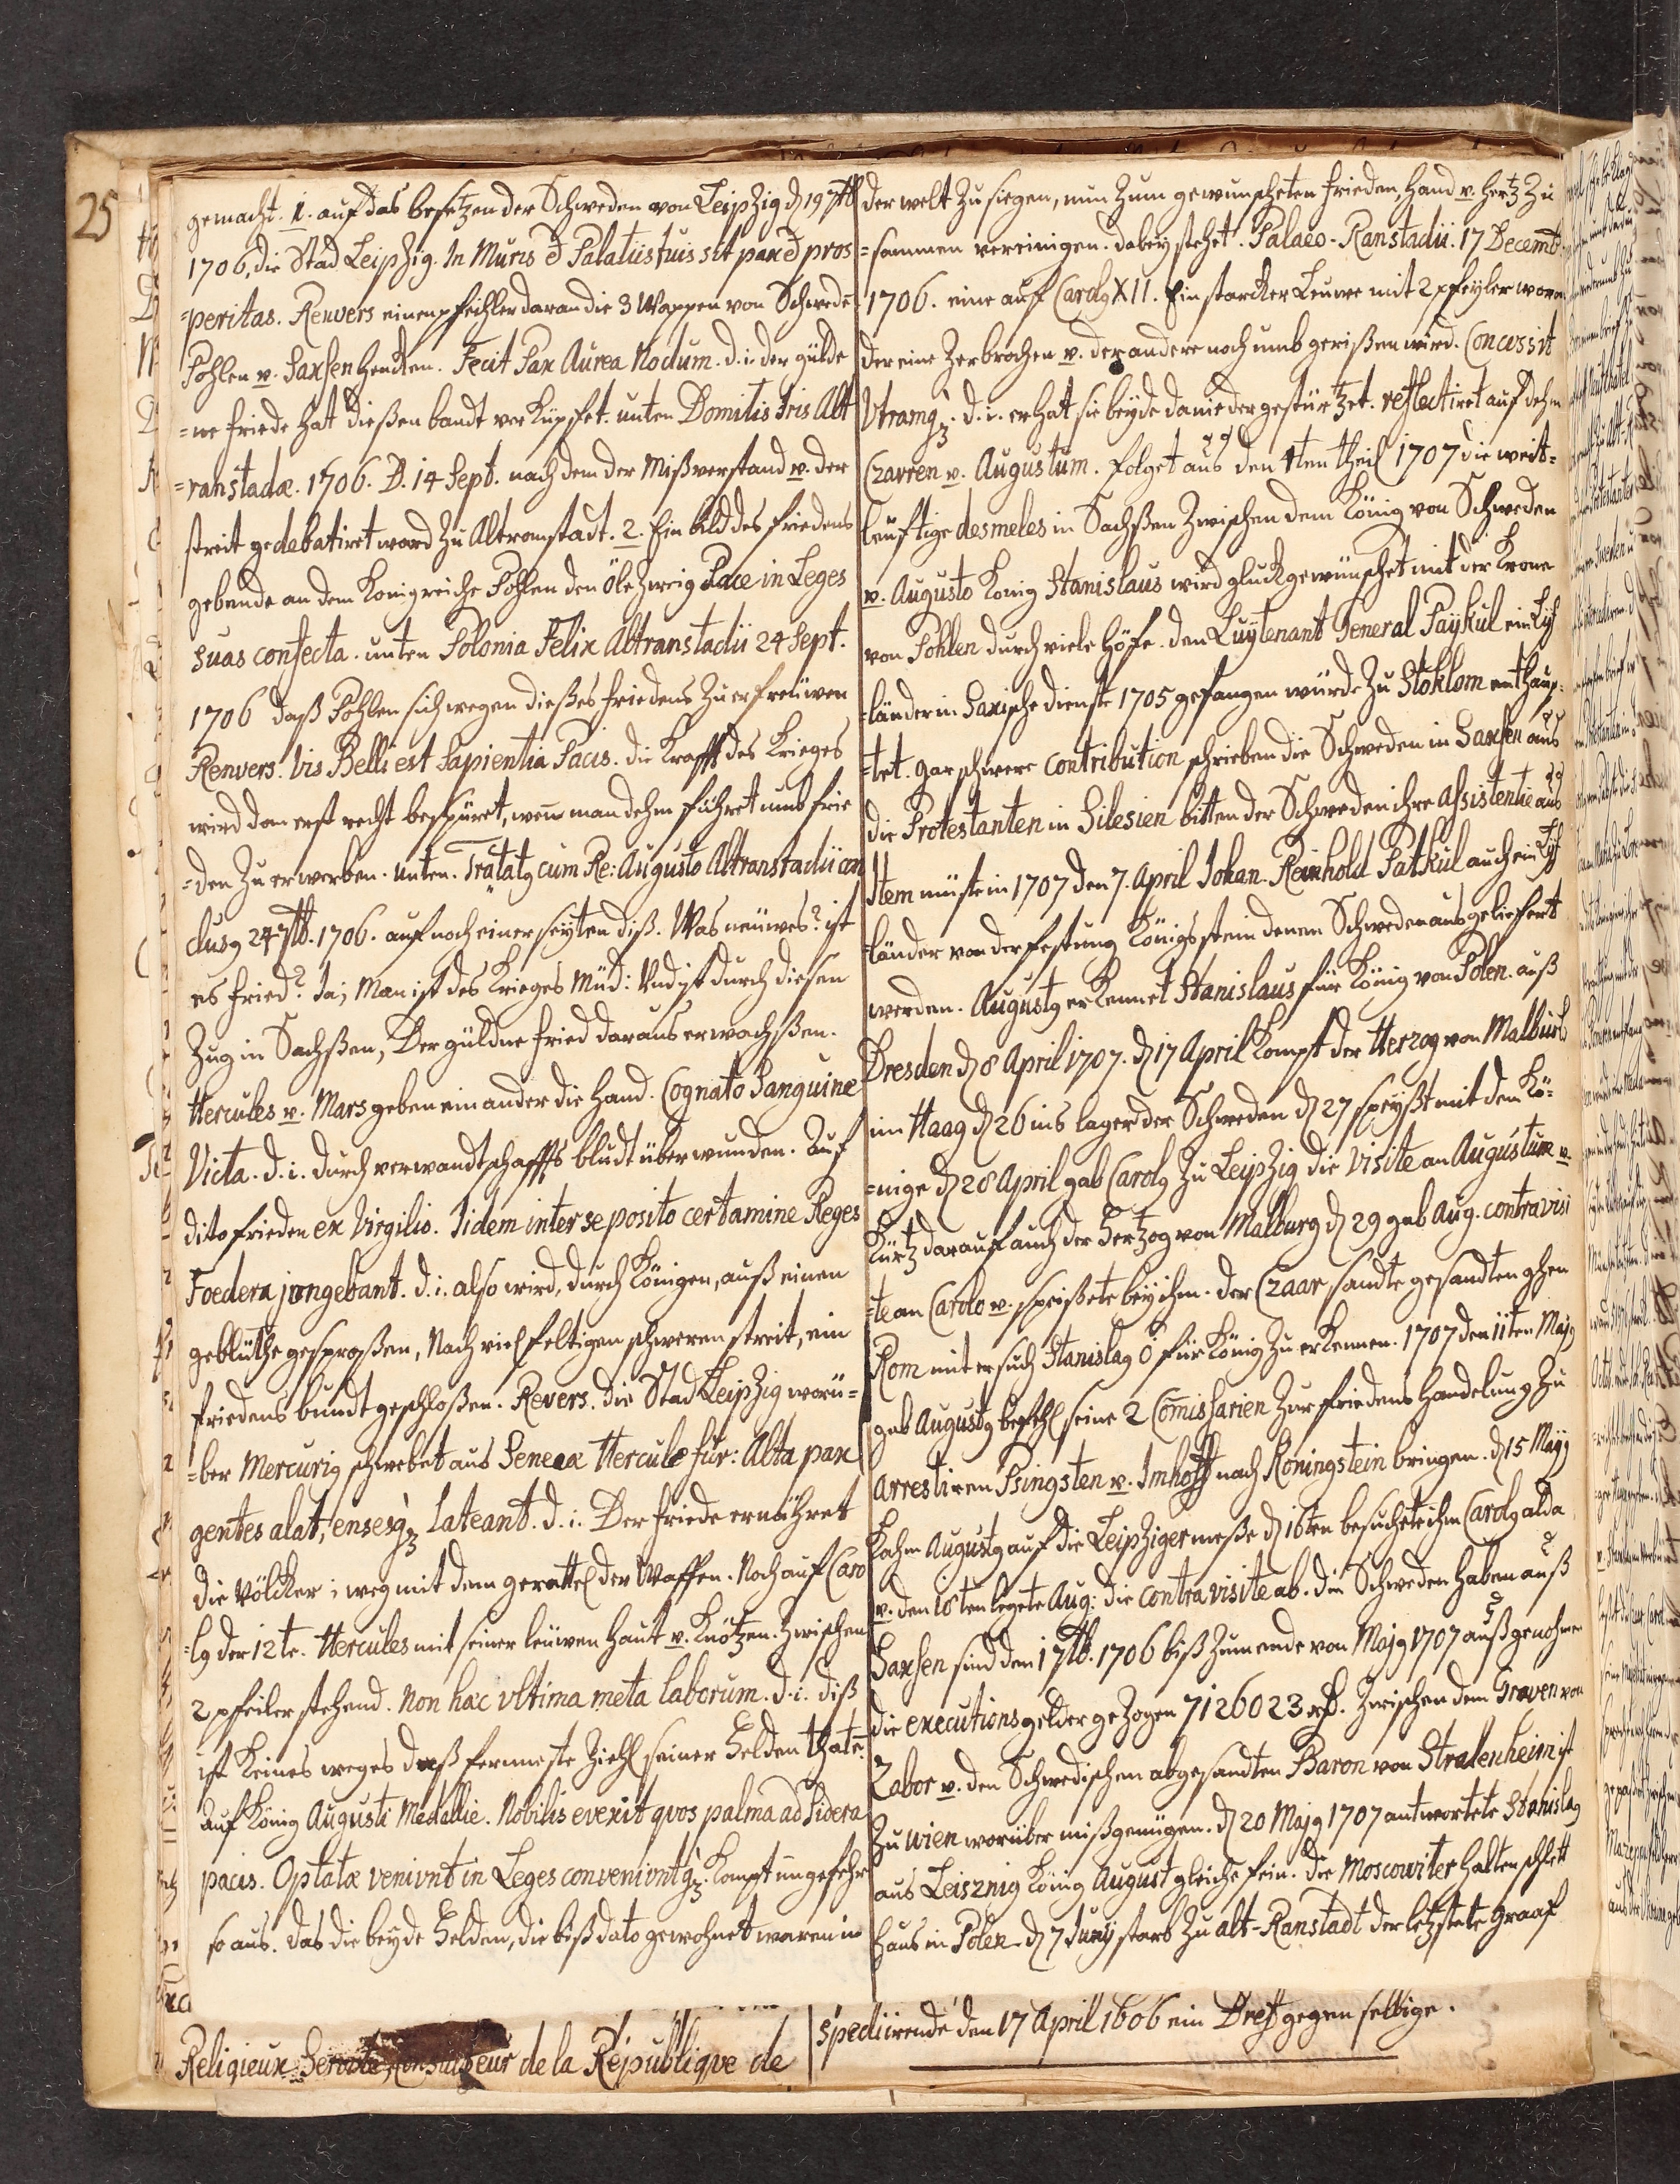 25
gemacht. 1. auf das besetzen der Schweden von Leipzig d 19 7tb
1706, die Stad Leipzig. In Muris & Palatiis tuis sit pax & pros
=peritas. Renvers einen pfeihler daran die 3 Wappen von Schwede
Pohlen v. Saxsen hencken. Fecit Pax Aurea Nodum. d. i. der gülde
=ne friede hat dießen bandt verknüpffet. unten Domitis Iris Alt
=ranstadæ. 1706. D. 14 Sept. nach dem der Mißverstand v. der
streit gedebatiret ward zu Altranstadt. 2. Ein bild des friedens
gebende an dem Konigreiche Pohlen den Öhlzweig Pace in Leges
suas confecta. unten Polonia Felix Altranstadii 24 Sept.
1706 daß Pohlen sich wegen dießes friedens zu erfreüwen
Renvers. Vis Belli est Sapientia Pacis. die Krafft des Krieges
wird dan erst recht bespüret, wen man dehm führet umb frie
=den zu erwerben. unten. Tratatg cum Re: Augusto Altranstadii con
clusg 24 7tb. 1706. auf noch einer seyten diß. Was neüwes? ist
es fried? Ja; Man ist des Krieges müd: Und ist durch diesen
Zug in Sachßen, Der güldne fried daraus erwachßen.
Hercules v. Mars geben ein ander die hand. Cognato Sanguine
Victa. d. i. durch verwandtschaffts bludt überwunden. Auf
dito frieden ex Virgilio. Iidem inter se posito certamine Reges
Foedera jungebant. d. i. also wird, durch Königen, auß einen
geblüthe gesproßen, Nach vielfeltigen schweren streit, ein
friedens bundt geschloßen. Revers. die Stad Leipzig worü=
=ber Mercurig schwebet aus Seneca Hercule fur: Alta pax
gentes alat, ensesq Lateant. d. i. Der friede ernähret
die Völcker; weg mit dem gerattel der Waffen. Noch auf Caro
=lg der 12te. Hercules mit seiner leüwen haut v. Knötzen. zwischen
2 pfeiler stehend. Non hæc vltima meta laborum. d. i. diß
ist keines weges daß fermeste ziehl seiner Helden thate.
Auf König Augusti Medallie. Nobilis evexit qvos palma ad Sidera
pacis. Optatæ venivnt in Leges convenivntq. kompt ungefehr
so aus. das die beyde Helden, die biß dato gewohnet waren in
Religieux Servite, Consulteur de la République de
der welt zu siegen, nun zum gewunscheten frieden, Hand v. hertz zu
=sammen vereinigen. dabey stehet. Palaeo-Ranstadii. 17 Decemb.
1706. eine auf Carolg XII. Ein starcker Leuwe mit 2 pfeyler wovon
der eine zerbrochen v. der andere noch umb gerißen wird. Concussit
Vtramq. d. i. er hat sie beyde danieder gestürtzet. reflectiret auf dehn
Czarren v. Augustum. folget aus den 1ten theil 1707 die weit=
leuftige desmeles in Sachßen zwischen dem König von Schweden
v. Augusto König Stanislaus wird gluckgewünschet mit der Krone
von Pohlen durch viele Höfe. den Luytenant General Paykul ein Lyf
=länder in Saxische dienste 1705 gefangen würde zu Stoklom enthaup=
=tet. gar schwere contribution schrieben die Schweden in Saxsen aus
die Protestanten in Silesien bitten der Schweden ihre assistentie aus
Item müste in 1707 den 7. April Johan. Reinhold Patkul auch ein Lyf
=länder von der festung Königsstein denen Schweden ausgeliefert
werden. Augustg erkennet Stanislaus für König von Polen. auß
Dresden d 8 April 1707. d 17 April kompt der Herzog von Malburg
im Haag d 26 ins lager der Schweden d 27 speyßt mit dem Kö=
=nige d 28 April gab Carolg zu Leipzig die Visite an Augustum v.
kurtz darauf auch der Hertzog von Malburg d 29 gab Aug. contravisi
=te an Carolo v. speißete bey ihm. der Czaar sandte gesandten ghen
Rom mit ersuch Stanislag Ö für König zu erkennen. 1707 den 11ten Majg
gab Augustg befehl seine 2 Comissarien zur friedens handelung zu
arrestiren Pfingsten v. Imhoff nach Koningstein bringen. d 15 Majg
kahm Augustg auf die Leipziger meße d 16ten besuchte ihn Carolg alda
v. den 18ten legete Aug: die contravisite ab. die Schweden haben auß
Saxsen sind den 1 7tb. 1706 biß zum ende von Majg 1707 außgenohmen
die executionsgelder gezogen 7126023 rß. zwischen dem Graven von
Zabor v. den Schwedischen abgesandten Baron von Stralenheim ist
zu wien worüber mißgenügen. d 20 Majg 1707 antwortete Stanislag
aus Leisznig König August gleiche fein. die Moscowiter halten schlett
haus in Polen. d 7 Juny starb zu alt-Ranstadt der letzstete Graaf
spediirende den 17 April 1606 ein Breff gegen selbige.